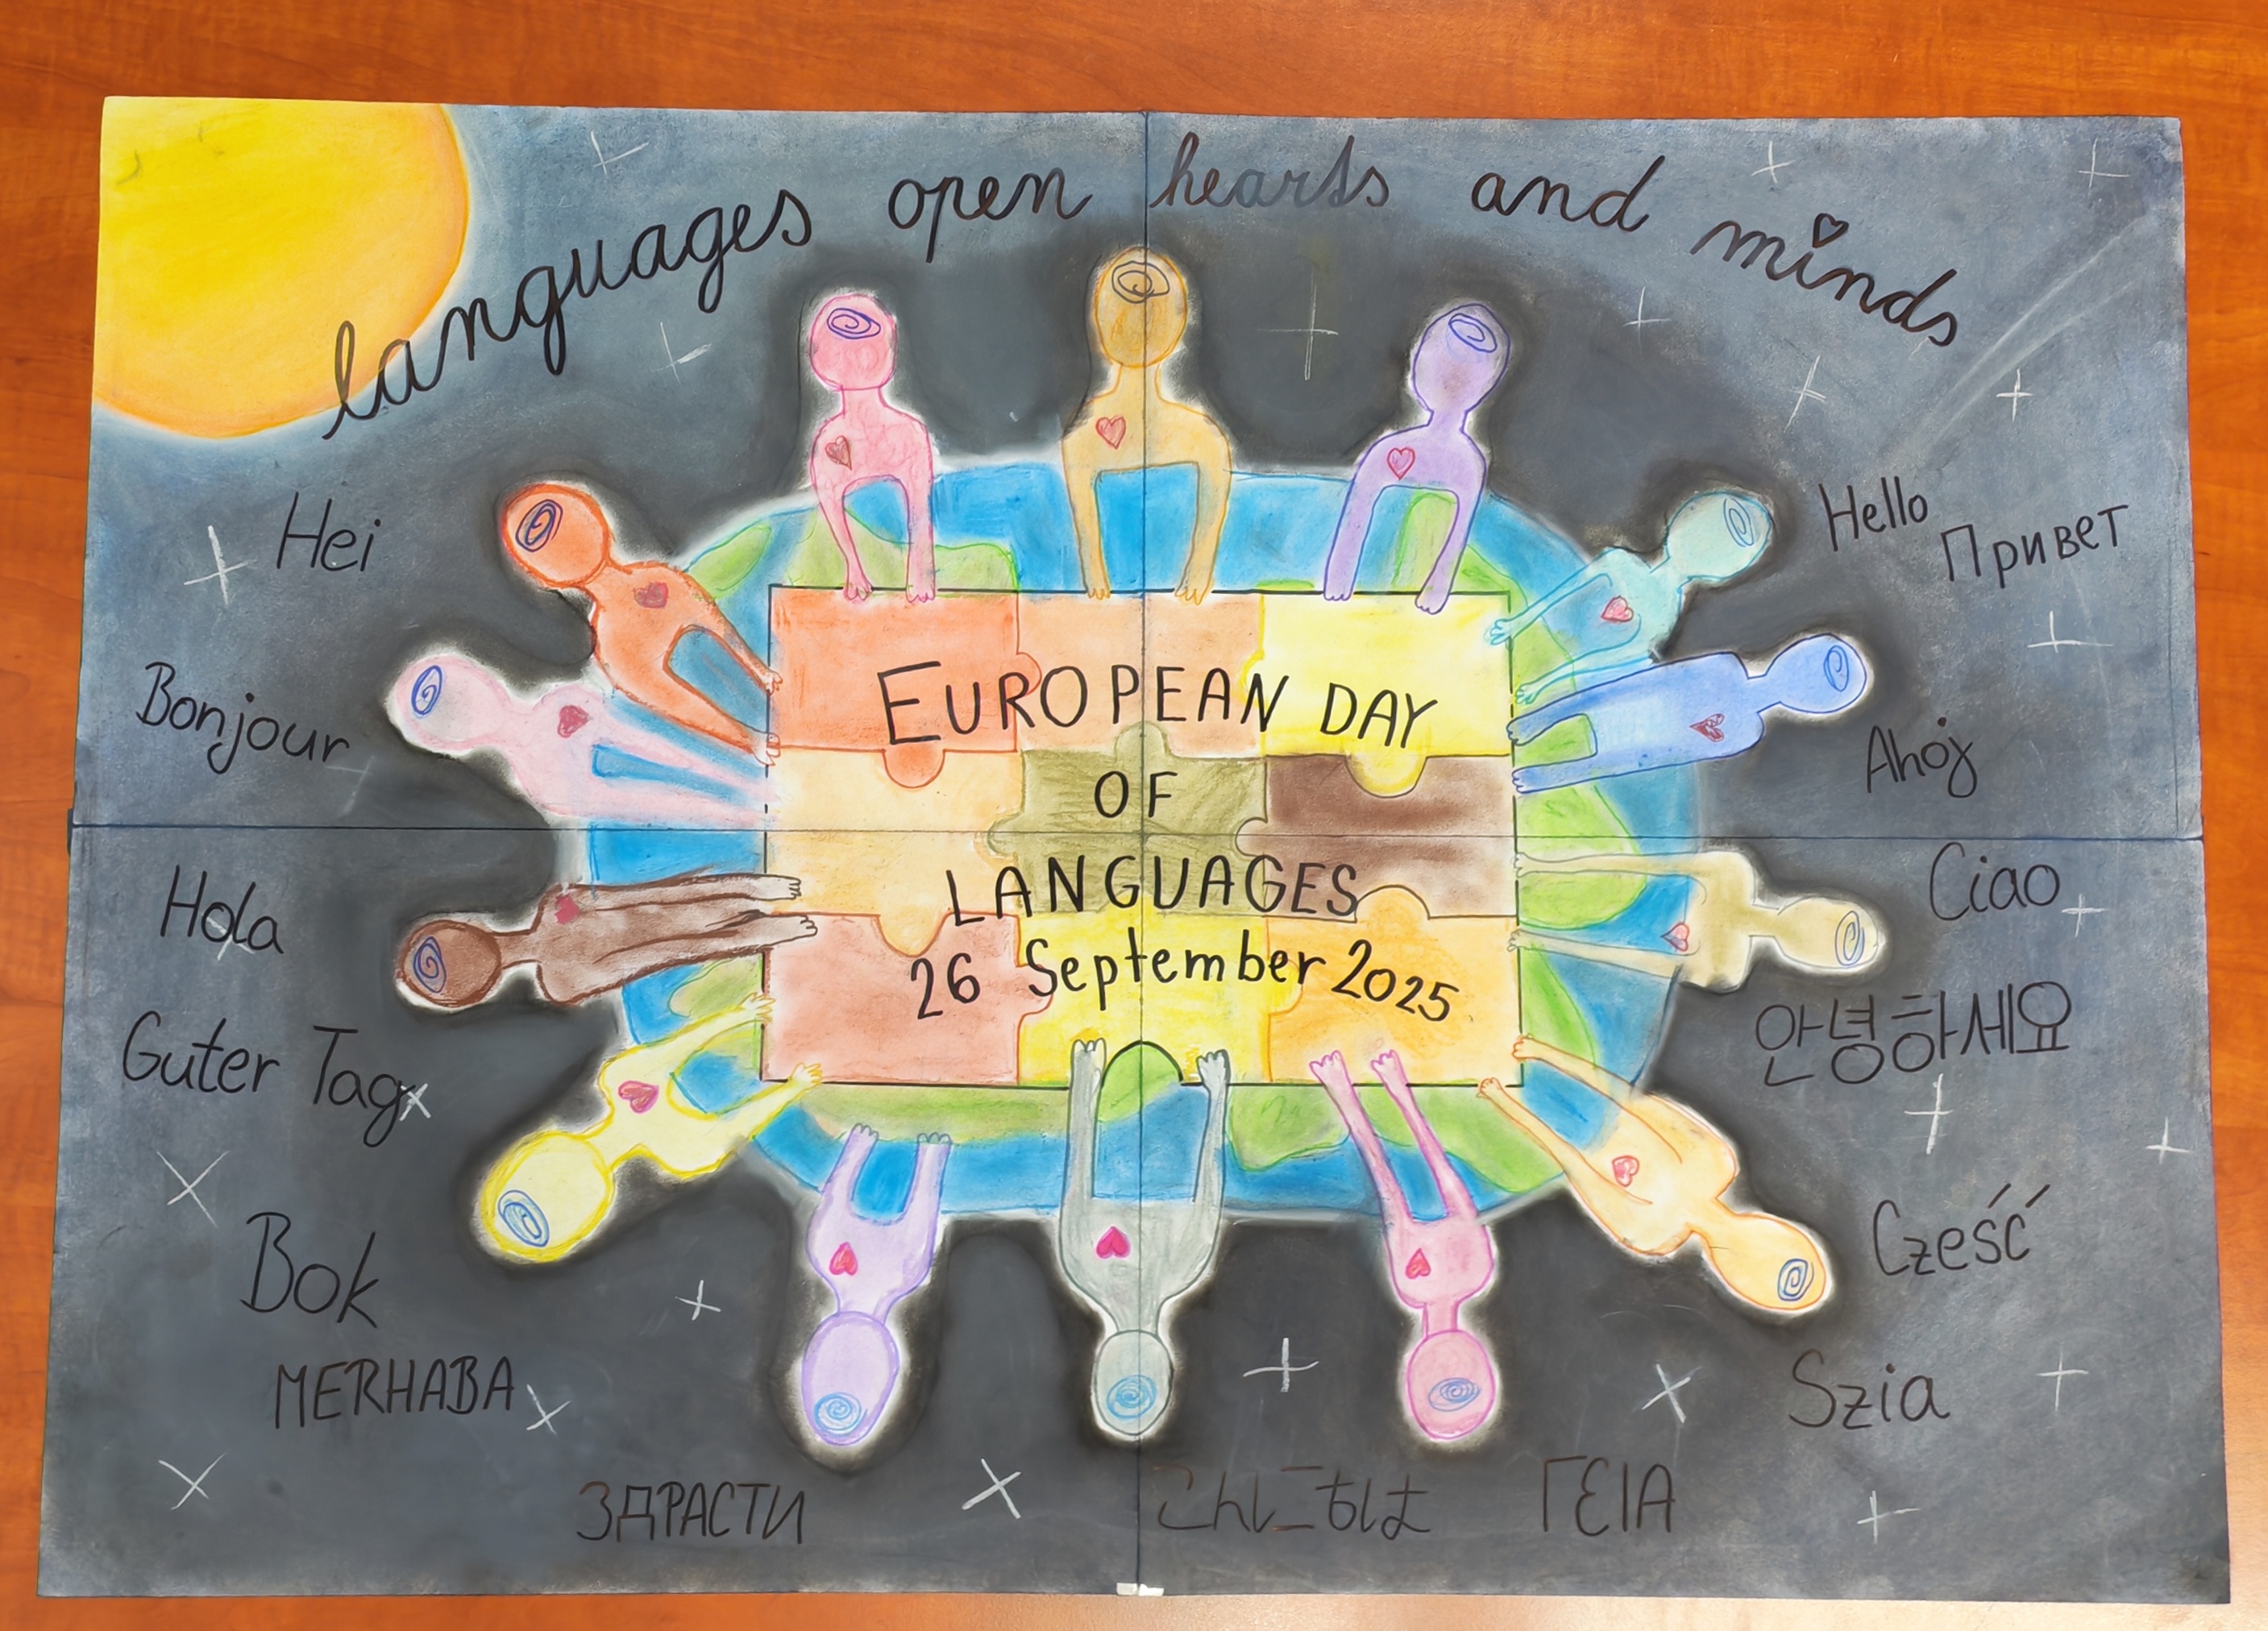 languages open hearts and minds
Hei
Bonjour
Hola
Guter Tag
Bok
MERHABA
ЗДРАСТИ
EUROPEAN DAY
OF
LANGUAGES
26 September 2025
Hello
Привет
Ahoj
Ciao
안녕하세요
Cześć
Szia
こんにちは
ΓΕΙΑ